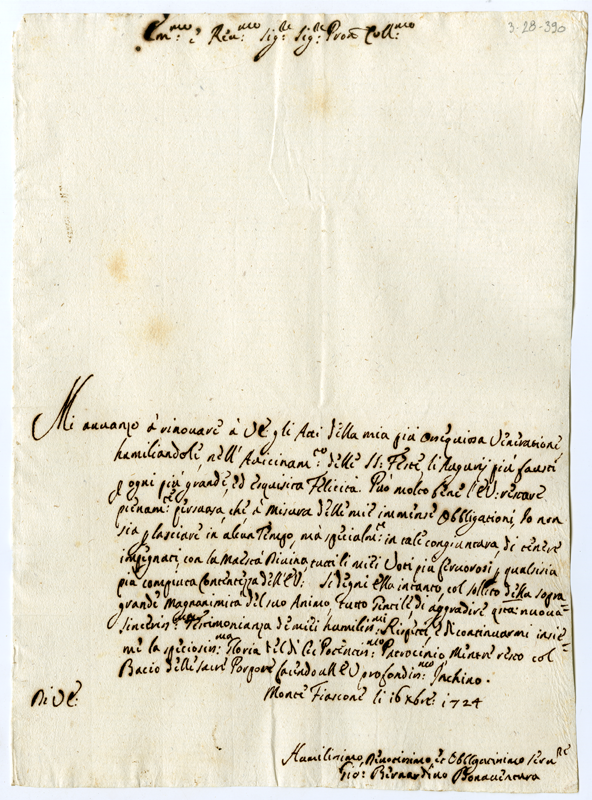 3-28-390
Em:mo e Reu:mo Sig:re Sig:re Pron Coll:mo
Mi auuanzo à rinouare à VE: gli Atti della mia più ossequiosa Veneratione,
humiliandole, nell' Auicinam:to delle SS: Feste li Augurij più fausti
p ogni più grande, ed esquisita Felicità. Può molto bene l'EV: restare
pienam:te persuasa, che à misura delle mie immense Obbligationi, Io non
sia p lasciare in alcun Tempo, mà specialm:te in tale congiuntura, di tenere
impegnati, con la Maestà Diuina tutti li miei Voti più feruorosi p qualsisia
più compiuta Contentezza dell'EV: Si degni ella intanto, col solito della sopra
grande Magnanimità del suo Animo, tutto Gentile di aggradire questa nuoua=
sinceriss:ma Testimonianza de miei humiliss:mi Rispetti, e di continuarmi insie=
me la speciosiss:ma Gloria del di Lei Potentiss:mo Patrocinio mentre resto col
Bacio delle sacre Porpore facendo all'EV profondiss:mo Inchino.
Di VE: Monte Fiascone li 16 Xbre: 1724
Humilissimo, Deuotissimo, et Obligatissimo seru:re
Gio: Bernardino Bonauentura